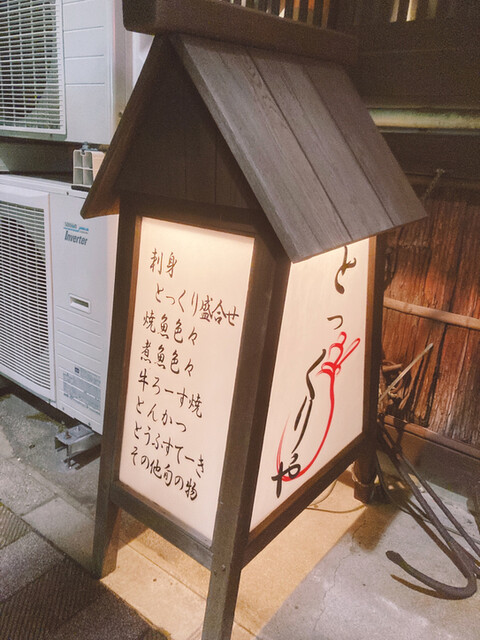 刺身
とっくり盛合せ
焼魚色々
煮魚色々
牛ろーす焼
とんかつ
とうふすてーき
その他旬の物
とっくりや
Inverter